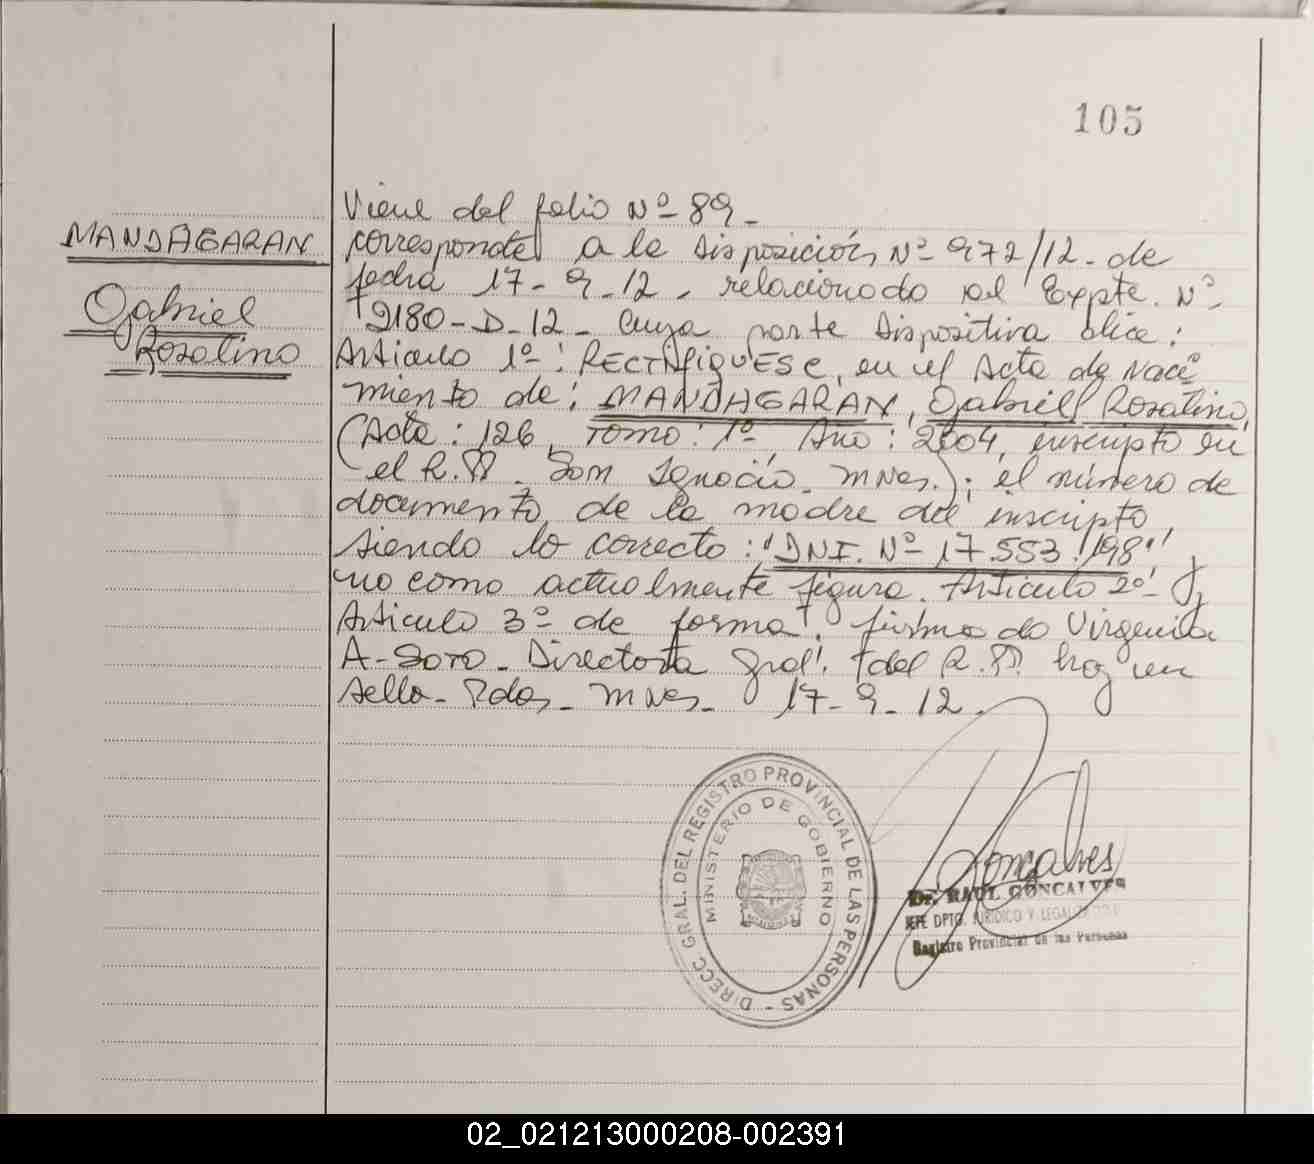 105
MANDAGARAN
Gabriel
Rosalino
Viene del folio Nº 89-
correspondte a la Disposición Nº 972/12- de
fecha 17-9-12, relacionado al Expte. Nº
9180-D-12- Cuya parte Dispositiva dice:
Articulo 1º: RECTIFIQUESE, en el Acta de Naci
miento de: MANDAGARAN, Gabriel Rosalino,
(Acta: 126, Tomo: 1º, Año: 2004, inscripto en
el R.P. San Ignacio. Mnes.); el número de
documento de la madre del inscripto,
siendo lo correcto: "DNI. Nº 17.553.198"
no como actualmente figura. Articulo 2º y
Articulo 3º de forma. firmado Virginia
A- Soto- Directora Gral. del R.P. hay un
sello- Pdas- Mnes- 17-9-12.
DIRECC. GRAL. DEL REGISTRO PROVINCIAL DE LAS PERSONAS -
MINISTERIO DE GOBIERNO
Goncalves
Dr. RAUL GONCALVES
JEFE DPTO. JURIDICO Y LEGALIZACION
Registro Provincial de las Personas
02_021213000208-002391